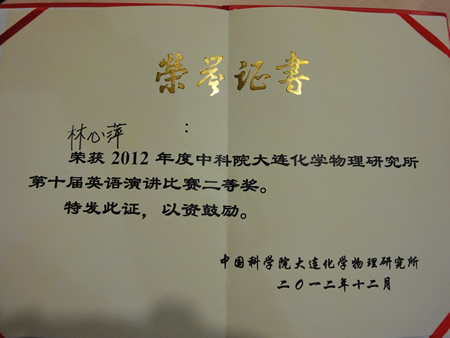 荣誉证书
林心萍：
荣获2012年度中科院大连化学物理研究所
第十届英语演讲比赛二等奖。
特发此证，以资鼓励。
中国科学院大连化学物理研究所
二〇一二年十二月